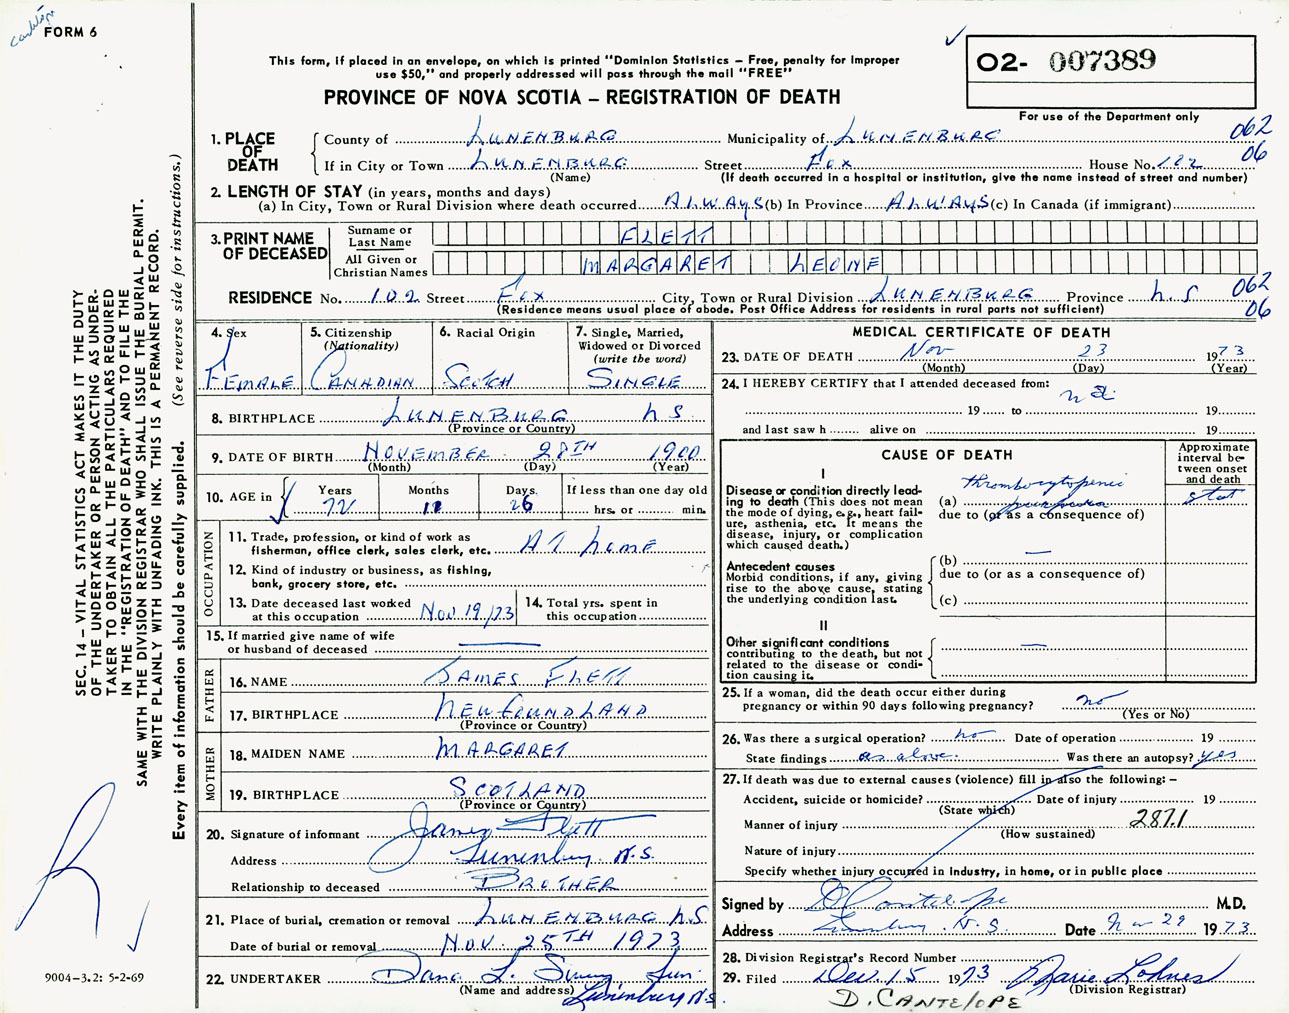 FORM 6
This form, if placed in an envelope, on which is printed "Dominion Statistics – Free, penalty for improper
use $50," and properly addressed will pass through the mail "FREE"
PROVINCE OF NOVA SCOTIA – REGISTRATION OF DEATH
O2- 007389
For use of the Department only
1. PLACE OF DEATH County of LUNENBURG Municipality of LUNENBURG 062
If in City or Town LUNENBURG Street Fox House No. 102 06
(Name) (If death occurred in a hospital or institution, give the name instead of street and number)
2. LENGTH OF STAY (in years, months and days)
(a) In City, Town or Rural Division where death occurred ALWAYS (b) In Province ALWAYS (c) In Canada (if immigrant)
3. PRINT NAME OF DECEASED
Surname or Last Name FLETT
All Given or Christian Names MARGARET LEONE
RESIDENCE No. 102 Street Fox City, Town or Rural Division LUNENBURG Province N.S 062
(Residence means usual place of abode. Post Office Address for residents in rural parts not sufficient) 06
4. Sex FEMALE
5. Citizenship (Nationality) CANADIAN
6. Racial Origin SCOTCH
7. Single, Married, Widowed or Divorced (write the word) SINGLE
8. BIRTHPLACE LUNENBURG N S
(Province or Country)
9. DATE OF BIRTH NOVEMBER 28TH 1900
(Month) (Day) (Year)
10. AGE in Years 72 Months 11 Days 26 If less than one day old hrs. or min.
OCCUPATION
11. Trade, profession, or kind of work as fisherman, office clerk, sales clerk, etc. AT HOME
12. Kind of industry or business, as fishing, bank, grocery store, etc.
13. Date deceased last worked at this occupation Nov 19/73
14. Total yrs. spent in this occupation
15. If married give name of wife or husband of deceased —
FATHER
16. NAME JAMES FLETT
17. BIRTHPLACE NEWFOUNDLAND
(Province or Country)
MOTHER
18. MAIDEN NAME MARGARET
19. BIRTHPLACE SCOTLAND
(Province or Country)
20. Signature of informant James Flett
Address Lunenburg N.S.
Relationship to deceased BROTHER
21. Place of burial, cremation or removal LUNENBURG N.S
Date of burial or removal NOV. 25TH 1973
22. UNDERTAKER Dana L. Sweeny
(Name and address) Lunenburg N.S.
MEDICAL CERTIFICATE OF DEATH
23. DATE OF DEATH Nov 23 1973
(Month) (Day) (Year)
24. I HEREBY CERTIFY that I attended deceased from:
19 to 19
and last saw h alive on 19
CAUSE OF DEATH
Approximate interval between onset and death
I
Disease or condition directly lead-
ing to death (This does not mean
the mode of dying, e.g., heart fail-
ure, asthenia, etc. It means the
disease, injury, or complication
which caused death.)
(a) thrombocytopenic purpura stat
due to (or as a consequence of)
Antecedent causes
Morbid conditions, if any, giving
rise to the above cause, stating
the underlying condition last.
(b) —
due to (or as a consequence of)
(c)
II
Other significant conditions
contributing to the death, but not
related to the disease or condi-
tion causing it.
—
25. If a woman, did the death occur either during
pregnancy or within 90 days following pregnancy? no
(Yes or No)
26. Was there a surgical operation? no Date of operation 19
State findings as above. Was there an autopsy? yes
27. If death was due to external causes (violence) fill in also the following: –
Accident, suicide or homicide? Date of injury 19
(State which)
Manner of injury 287.1
(How sustained)
Nature of injury
Specify whether injury occurred in industry, in home, or in public place
Signed by D Cantelope M.D.
Address Lunenburg. N.S. Date Nov 29 1973
28. Division Registrar's Record Number
29. Filed Dec. 15 1973 Marie Lohnes
(Division Registrar)
D. CANTELOPE
SEC. 14 – VITAL STATISTICS ACT MAKES IT THE DUTY
OF THE UNDERTAKER OR PERSON ACTING AS UNDER-
TAKER TO OBTAIN ALL THE PARTICULARS REQUIRED
IN THE "REGISTRATION OF DEATH" AND TO FILE THE
SAME WITH THE DIVISION REGISTRAR WHO SHALL ISSUE THE BURIAL PERMIT.
WRITE PLAINLY WITH UNFADING INK. THIS IS A PERMANENT RECORD.
Every item of information should be carefully supplied. (See reverse side for instructions.)
R
9004-3.2: 5-2-69